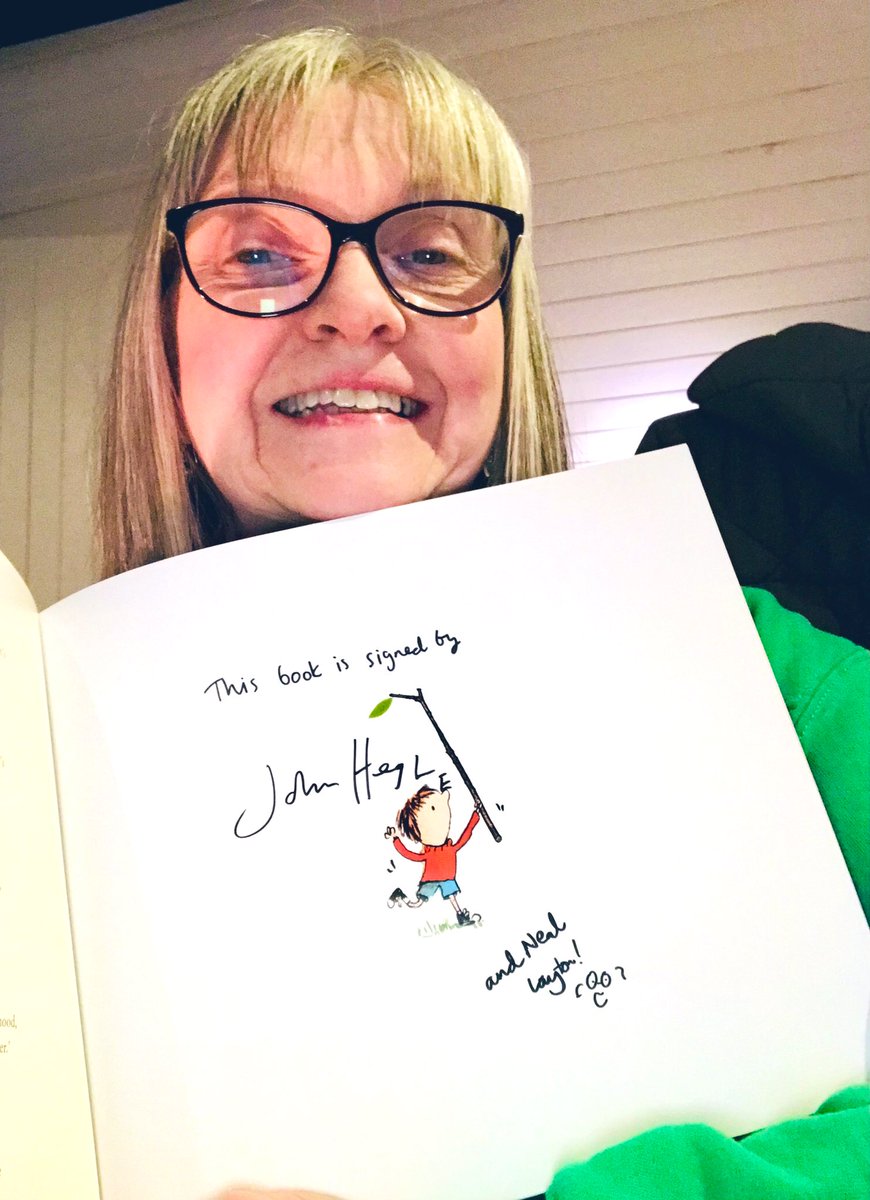 This book is signed by
John HegLE
and Neal
Layton!
hood,
er.'